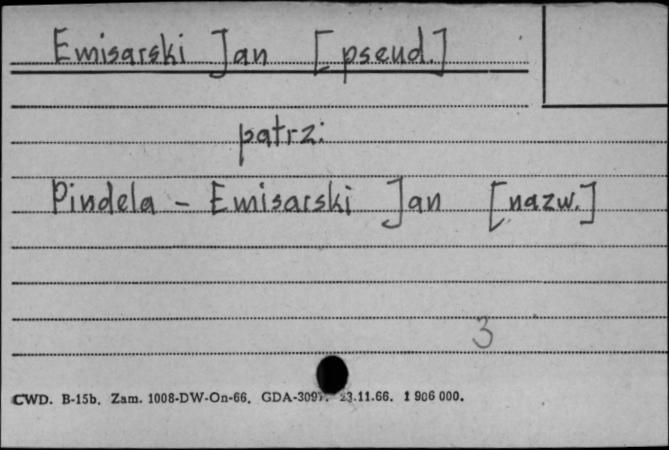 Emisarski Jan [pseud.]
patrz:
Pindela - Emisarski Jan [nazw.]
3
CWD. B-15b. Zam. 1008-DW-On-66. 23.11.66. 1 906 000.